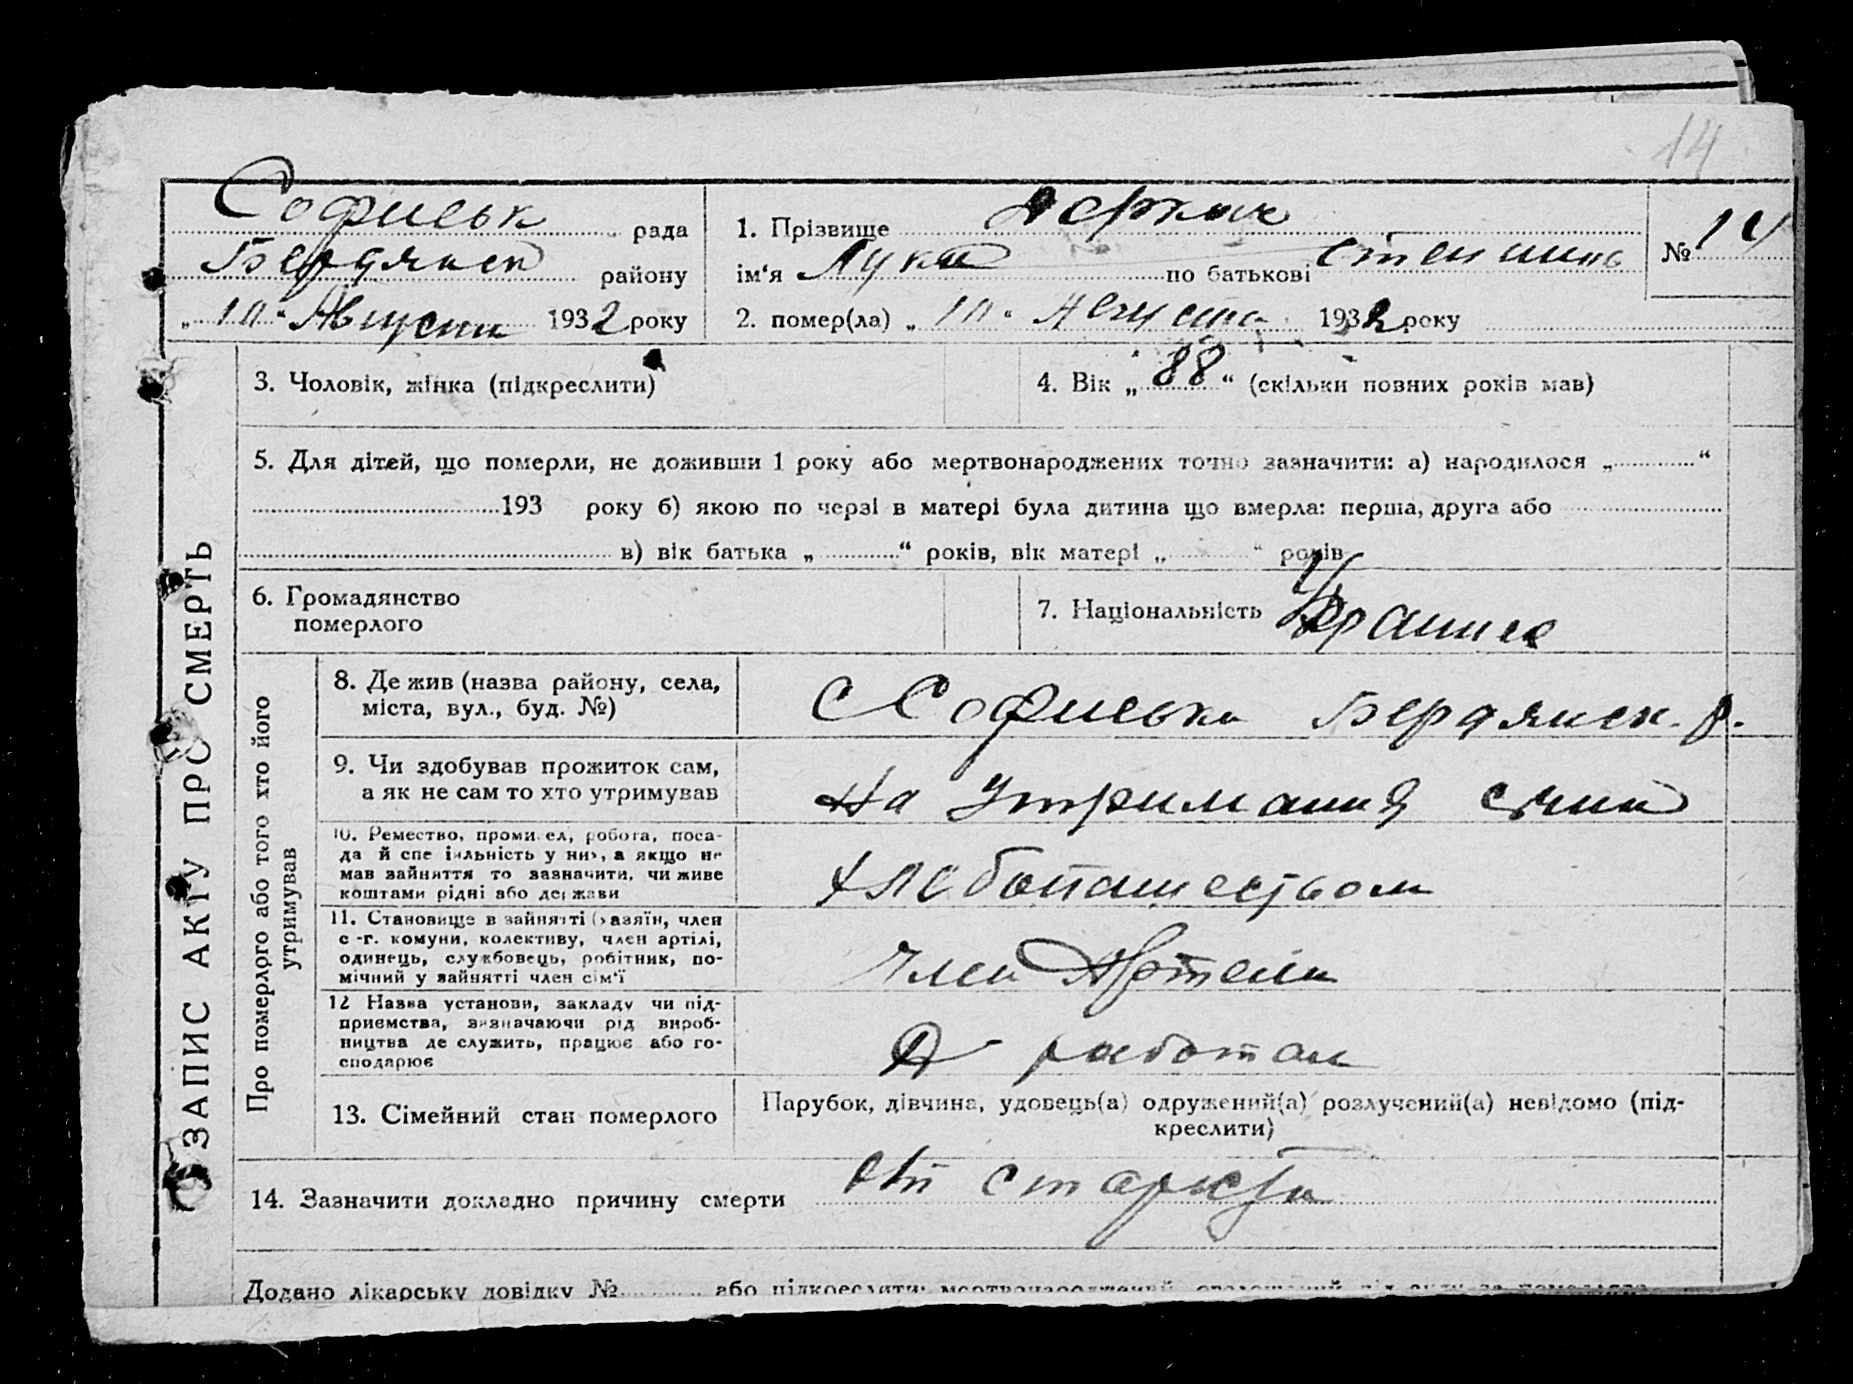 14
Софиевк рада
Бердянск району
„ 10 " Августа 1932 року
1. Прізвище Деркач
ім'я Лука по батькові
2. помер(ла) „ 10 " Августа 1932 року
№ 14
3. Чоловік, жінка (підкреслити)
4. Вік „ 88 “ (скільки повних років мав)
5. Для дітей, що померли, не доживши 1 року або мертвонароджених точно зазначити: а) народилося „ “
193 року б) якою по черзі в матері була дитина що вмерла: перша, друга або
в) вік батька „ “ років, вік матері „ “ років
6. Громадянство
померлого
7. Національність Украинец
ЗАПИС АКТУ ПРО СМЕРТЬ
Про померлого або того хто його
утримував
8. Де жив (назва району, села,
міста, вул., буд. №)
С Софиевка Бердянск. р.
9. Чи здобував прожиток сам,
а як не сам то хто утримував
На утримании сина
10. Ремество, промисел, робота, поса-
да й спеціяльність у них, а якщо не
мав зайняття то зазначити, чи живе
коштами рідні або держави
Хлебопашеством
11. Становище в зайнятті (хазяїн, член
с.-г. комуни, колективу, член артілі,
одинець, службовець, робітник, по-
мічний у зайнятті член сім'ї
Член Артели
12 Назва установи, закладу чи під-
приємства, зазначаючи рід вироб-
ництва де служить, працює або го-
сподарює
работал
13. Сімейний стан померлого
Парубок, дівчина, удовець(а) одружений(а) розлучений(а) невідомо (під-
креслити)
14. Зазначити докладно причину смерти От старости
Додано лікарську довідку № або підкреслити: мертвонароджений,